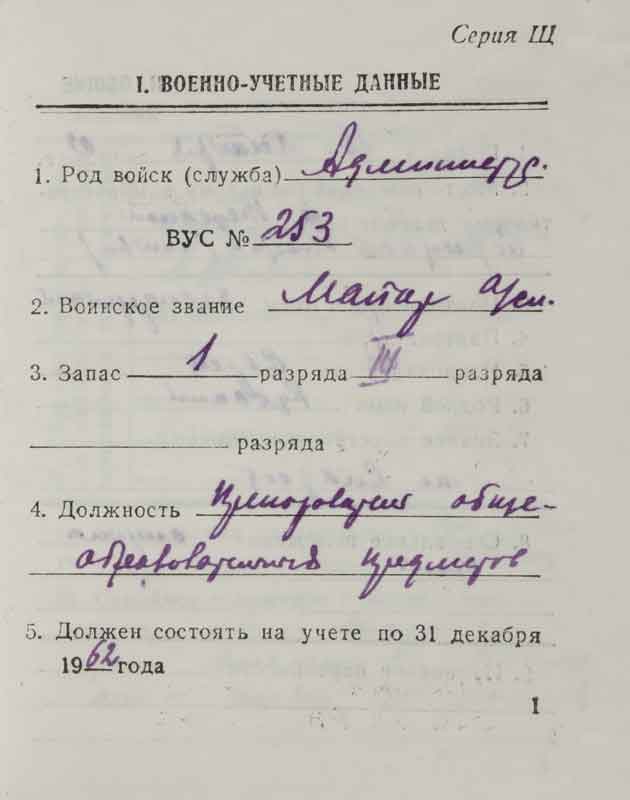 Серия Щ
I. ВОЕННО-УЧЕТНЫЕ ДАННЫЕ
1. Род войск (служба) Администр.
ВУС № 253
2. Воинское звание Майор
3. Запас 1 разряда III разряда
разряда
4. Должность Преподаватель обще-
образовательных предметов
5. Должен состоять на учете по 31 декабря
1962 года
1